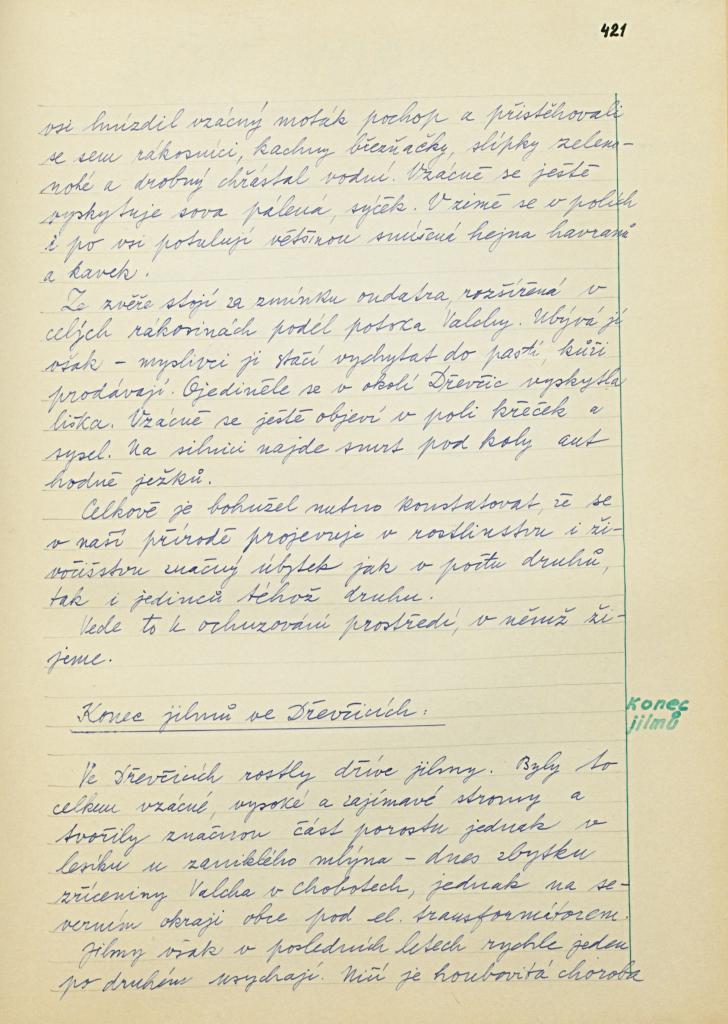 421
vsi hnízdil vzácný moták pochop a přistěhovali
se sem rákosníci, kachny březňačky, slípky zeleno-
nohé a drobný chřástal vodní. Vzácně se ještě
vyskytuje sova pálená, syček. V zimě se v polích
i po vsi potulují většinou smíšená hejna havranů
a kavek.
Ze zvěře stojí za zmínku ondatra, rozšířená v
celých rákosinách podél potoka Valchy. Ubývá jí
však - myslivci ji stačí vychytat do pastí, kůži
prodávají. Ojediněle se v okolí Dřevčic vyskytla
liška. Vzácně se ještě objeví v poli křeček a
sysel. Na silnici najde smrt pod koly aut
hodně ježků.
Celkově je bohužel nutno konstatovat, že se
v naší přírodě projevuje v rostlinstvu i ži-
vočišstvu značný úbytek jak v počtu druhů,
tak i jedinců téhož druhu.
Vede to k ochuzování prostředí, v němž ži-
jeme.
Konec jilmů ve Dřevčicích:
Konec
jilmů
Ve Dřevčicích rostly dříve jilmy. Byly to
celkem vzácné, vysoké a zajímavé stromy a
tvořily značnou část porostu jednak v
lesíku u zaniklého mlýna - dnes zbytku
zříceniny Valcha v Chobotech, jednak na se-
verním okraji obce pod el. transformátorem.
Jilmy však v posledních letech rychle jeden
po druhém usychají. Ničí je houbovitá choroba